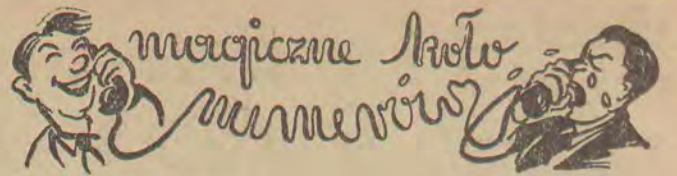 magiczne koło
numerów